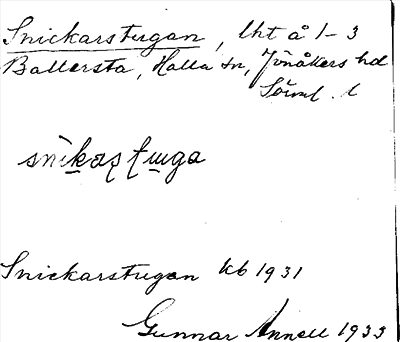 Snickarstugan, lht å 1-3
Ballersta, Halla sn, Jönåkers hd
Sörml. l
snikaştɯga
Snickarstugan kb 1931
Gunnar Annell 1933